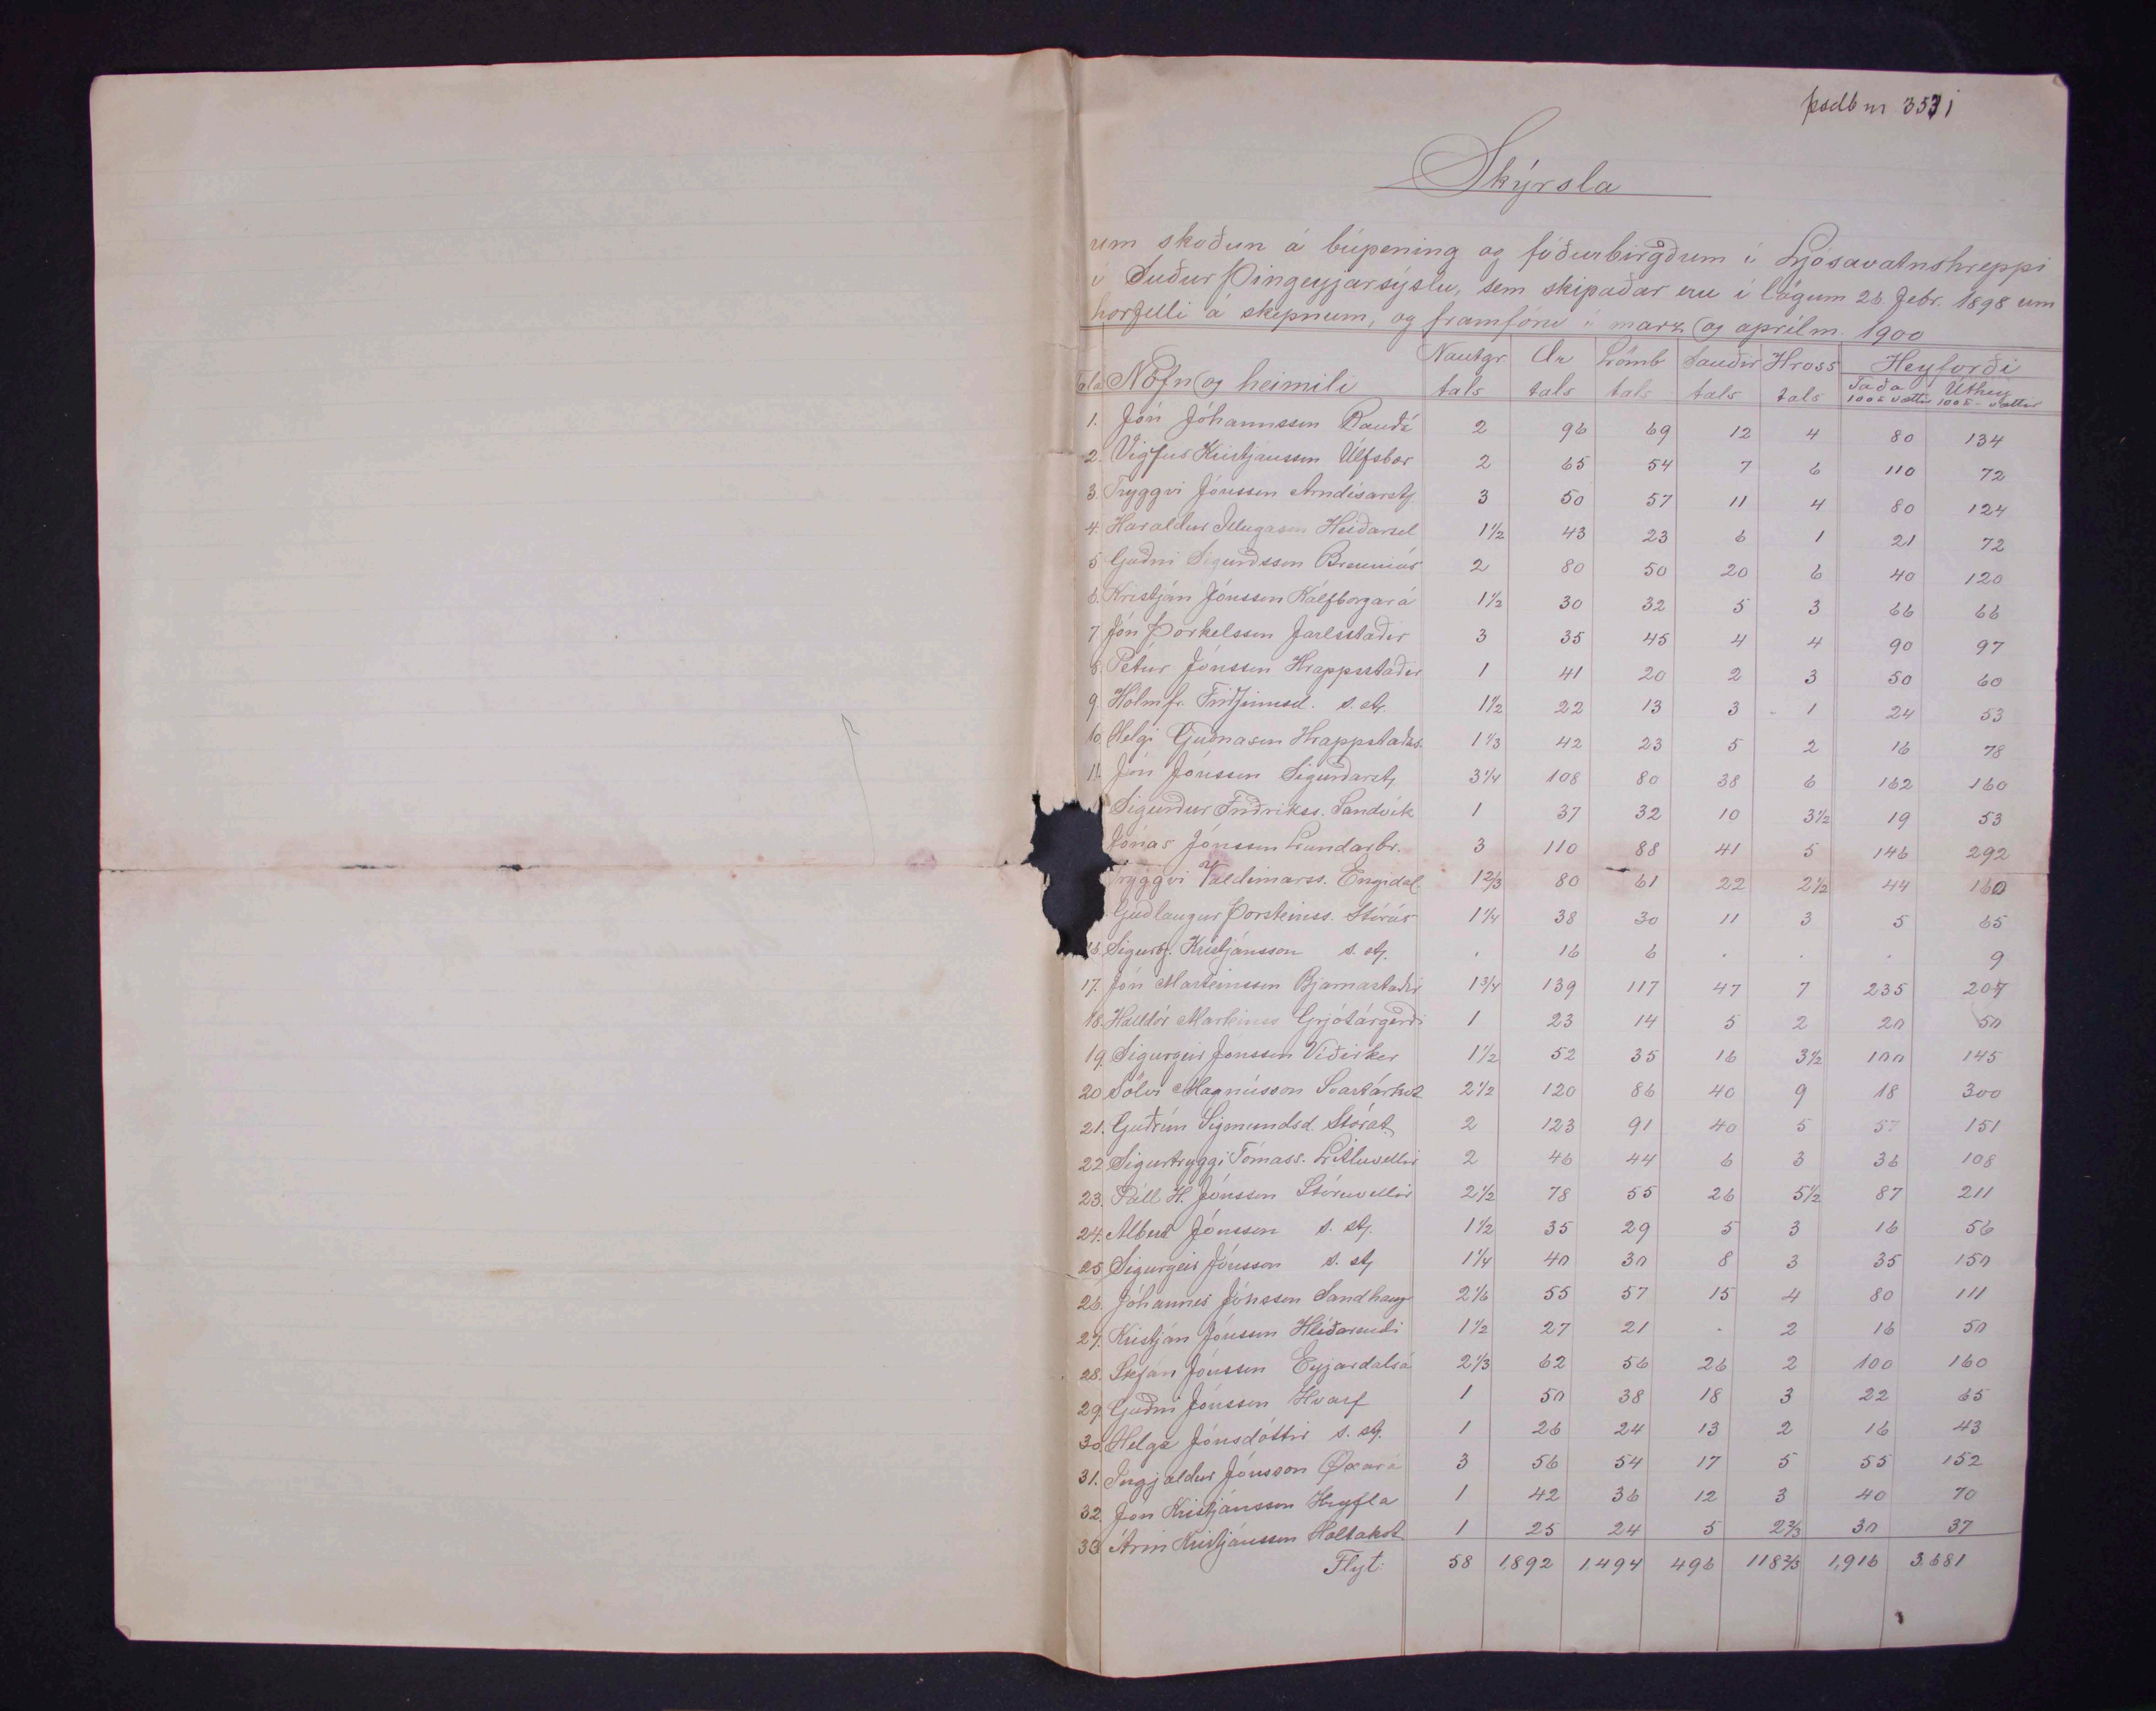 þsdb nr 353 i
Skýrsla
um skoðun á búpening og fóðurbirgðum í Ljósavatnshreppi
í Suður Þingeyjarsýslu, sem skipaðar eru í lögum 26 febr. 1898 um
horfelli á skepnum, og framfóru í marz og aprílm. 1900
Tala Nöfn og heimili Nautgr tals Ær tals Lömb tals Sauðir tals Hross tals Heyforði Taða 100 ℔ vættir Úthey 100 ℔ - vættir
1. Jón Jóhannsson Rauðá 2 96 69 12 4 80 134
2. Vigfús Kristjánsson Úlfsbær 2 65 54 7 6 110 72
3. Tryggvi Jónsson Arndísarstj 3 50 57 11 4 80 124
4. Haraldur Illugason Heiðarsel 1 1/2 43 23 6 1 21 72
5 Guðni Sigurðsson Brenniás 2 80 50 20 6 40 120
6. Kristján Jónsson Kálfborgará 1 1/2 30 32 5 3 66 66
7 Jón Þorkelsson Jarlsstaðir 3 35 45 4 4 90 97
8. Pétur Jónsson Hrappsstaðir 1 41 20 2 3 50 60
9 Hólmfr. Friðfinnsd. s. stj. 1 1/2 22 13 3 1 24 53
10. Helgi Guðnason Hrappstaðas. 1 1/3 42 23 5 2 16 78
11. Jón Jónsson Sigurðarstj 3 1/4 108 80 38 6 162 160
Sigurður Friðrikss. Sandvík 1 37 32 10 3 1/2 19 53
Jónas Jónsson Lundarbr. 3 110 88 41 5 146 292
Tryggvi Valdimarss. Engidal 1 2/3 80 61 22 2 1/2 44 160
Guðlaugur Þorsteinss. Stórás 1 1/4 38 30 11 3 5 65
16. Sigurbj. Kristjánsson s. stj. . 16 6 . . . 9
17. Jón Marteinsson Bjarnastaðir 1 3/4 139 117 47 7 235 207
18. Halldór Marteinss Grjótárgerði 1 23 14 5 2 20 50
19. Sigurgeir Jónsson Víðirker 1 1/2 52 35 16 3 1/2 100 145
20 Sölvi Magnússon Svartárkot 2 1/2 120 86 40 9 18 300
21. Guðrún Sigmundsd. Stórat. 2 123 91 40 5 57 151
22 Sigurtryggvi Tómass. Litluvellir 2 46 44 6 3 36 108
23. Páll H. Jónsson Stóruvellir 2 1/2 78 55 26 5 1/2 87 211
24. Albert Jónsson s. stj. 1 1/2 35 29 5 3 16 56
25 Sigurgeir Jónsson s. stj 1 1/4 40 30 8 3 35 150
26. Jóhannes Jónsson Sandhaug 2 1/6 55 57 15 4 80 111
27. Kristján Jónsson Hlíðarendi 1 1/2 27 21 - 2 16 50
28. Stefán Jónsson Eyjardalsá 2 1/3 62 56 26 2 100 160
29. Guðni Jónsson Hvarf 1 50 38 18 3 22 65
30 Helga Jónsdóttir s. stj. 1 26 24 13 2 16 43
31. Ingjaldur Jónsson Öxará 3 56 54 17 5 55 152
32. Jón Kristjánsson Hryfla 1 42 36 12 3 40 70
33 Árni Kristjánsson Holtakot 1 25 24 5 2 2/3 30 37
Flyt: 58 1,892 1,494 496 118 2/3 1,916 3,681